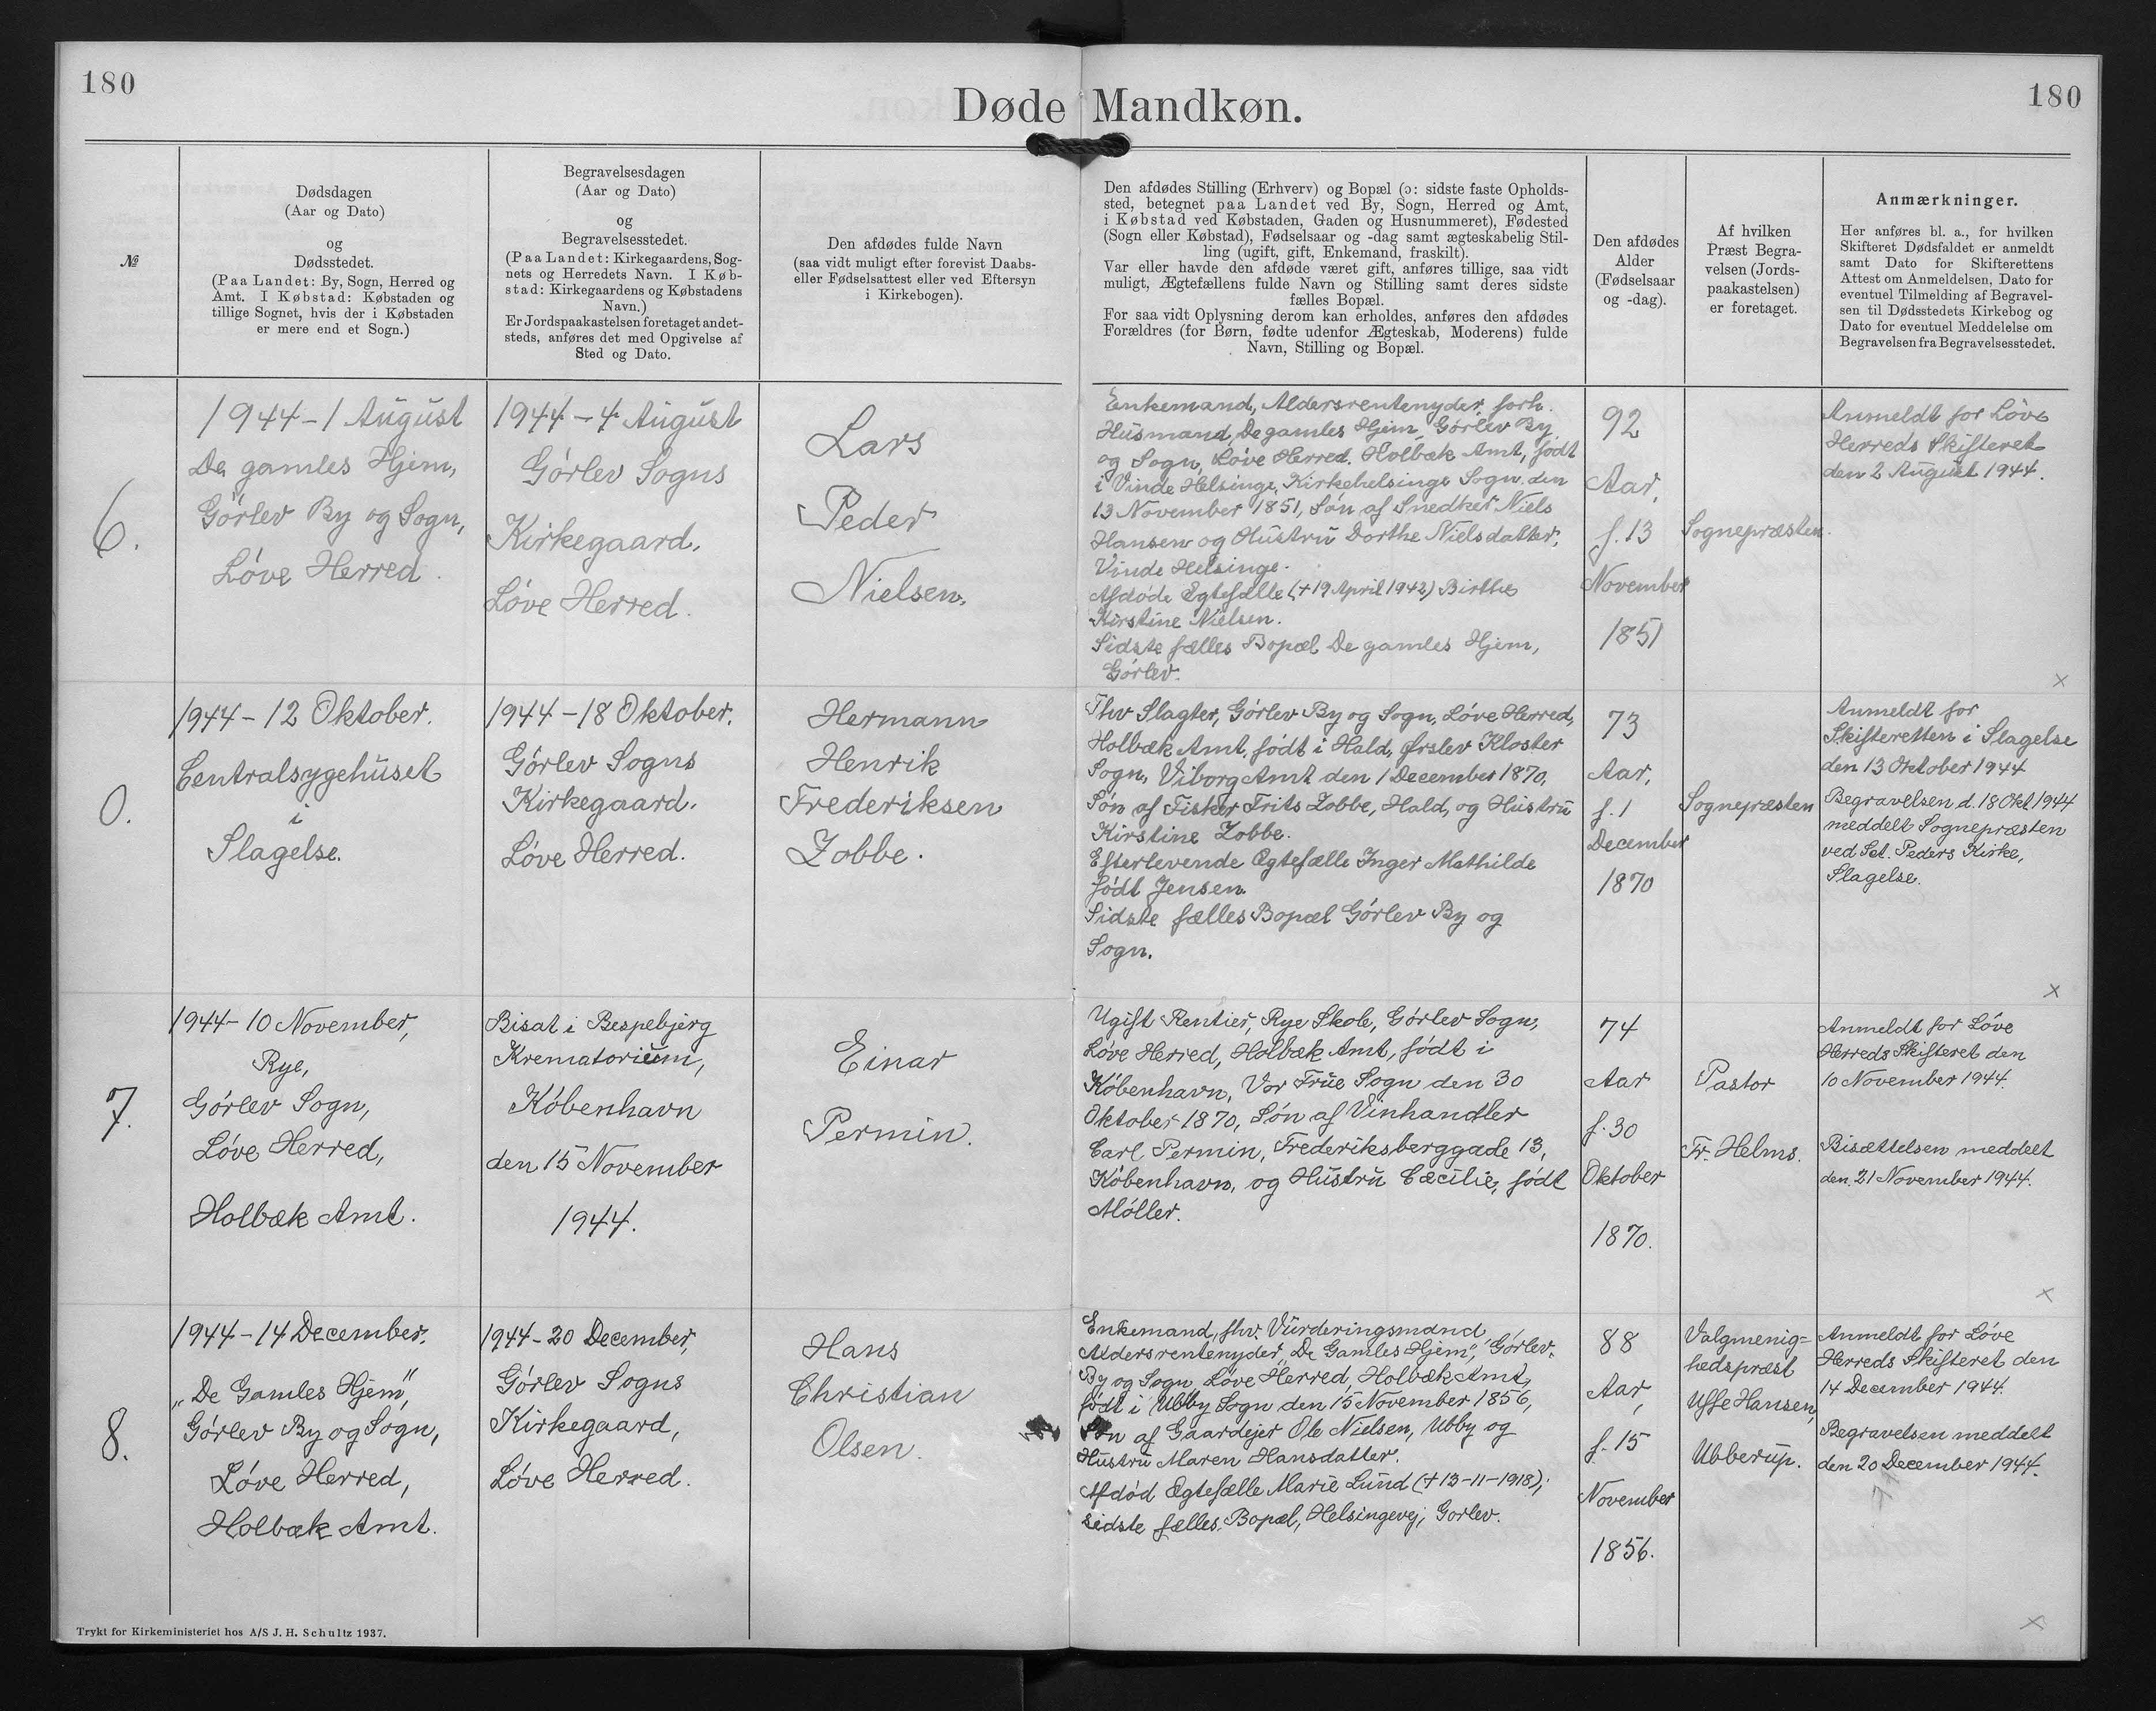 180
Døde Mandkøn.
180
№
Dødsdagen
(Aar og Dato)
og
Dødsstedet.
(Paa Landet: By, Sogn, Herred og
Amt. I Købstad: Købstaden og
tillige Sognet, hvis der i Købstaden
er mere end et Sogn.)
Begravelsesdagen
(Aar og Dato)
og
Begravelsesstedet.
(Paa Landet: Kirkegaardens, Sog-
nets og Herredets Navn. I Køb-
stad: Kirkegaardens og Købstadens
Navn.)
Er Jordspaakastelsen foretaget andet-
steds, anføres det med Opgivelse af
Sted og Dato.
Den afdødes fulde Navn
(saa vidt muligt efter forevist Daabs-
eller Fødselsattest eller ved Eftersyn
i Kirkebogen).
Den afdødes Stilling (Erhverv) og Bopæl (ɔ: sidste faste Opholds-
sted, betegnet paa Landet ved By, Sogn, Herred og Amt,
i Købstad ved Købstaden, Gaden og Husnummeret), Fødested
(Sogn eller Købstad), Fødselsaar og -dag samt ægteskabelig Stil-
ling (ugift, gift, Enkemand, fraskilt).
Var eller havde den afdøde været gift, anføres tillige, saa vidt
muligt, Ægtefællens fulde Navn og Stilling samt deres sidste
fælles Bopæl.
For saa vidt Oplysning derom kan erholdes, anføres den afdødes
Forældres (for Børn, fødte udenfor Ægteskab, Moderens) fulde
Navn, Stilling og Bopæl.
Den afdødes
Alder
(Fødselsaar
og -dag).
Af hvilken
Præst Begra-
velsen (Jords-
paakastelsen)
er foretaget.
Anmærkninger.
Her anføres bl. a., for hvilken
Skifteret Dødsfaldet er anmeldt
samt Dato for Skifterettens
Attest om Anmeldelsen, Dato for
eventuel Tilmelding af Begravel-
sen til Dødsstedets Kirkebog og
Dato for eventuel Meddelelse om
Begravelsen fra Begravelsesstedet.
6.
1944-1 August
De gamles Hjem,
Görlev By og Sogn,
Löve Herred.
1944-4 August
Görlev Sogns
Kirkegaard.
Löve Herred.
Lars
Peder
Nielsen.
Enkemand, Aldersrentenyder, forh.
Husmand, De gamles Hjem, Görlev By
og Sogn, Löve Herred. Holbæk Amt, født
i Vinde Helsinge, Kirkehelsinge Sogn, den
13 November 1851, Søn af Snedker Niels
Hansen og Hustru Dorthe Nielsdatter,
Vinde Helsinge.
Afdøde Ægtefælle (+19 April 1942) Birthe
Kirstine Nielsen.
Sidste fælles Bopæl De gamles Hjem,
Görlev.
92
Aar,
f. 13
November
1851
Sognepræsten.
Anmeldt for Löve
Herreds Skifteret
den 2 August 1944.
x
0.
1944-12 Oktober.
Centralsygehuset
i
Slagelse.
1944-18 Oktober.
Görlev Sogns
Kirkegaard.
Löve Herred.
Hermann
Henrik
Frederiksen
Zobbe.
Fhv Slagter, Görlev By og Sogn, Löve Herred,
Holbæk Amt, født i Hald, Ørslev Kloster
Sogn, Viborg Amt den 1 December 1870,
Søn af Fisker Frits Zobbe, Hald, og Hustru
Kirstine Zobbe.
Efterlevende Ægtefælle Inger Mathilde
født Jensen.
Sidste fælles Bopæl Görlev By og
Sogn.
73
Aar,
f. 1
December
1870
Sognepræsten
Anmeldt for
Skifteretten i Slagelse
den 13 Oktober 1944
Begravelsen d. 18 Okt 1944
meddelt Sognepræsten
ved Sct. Peders Kirke,
Slagelse.
x
7.
1944-10 November,
Rye,
Görlev Sogn,
Löve Herred,
Holbæk Amt.
Bisat i Bispebjerg
Krematorium,
København
den 15 November
1944.
Einar
Permin.
Ugift Rentier, Rye Skole, Görlev Sogn,
Löve Herred, Holbæk Amt, født i
København, Vor Frue Sogn den 30
Oktober 1870, Søn af Vinhandler
Carl Permin, Frederiksberggade 13,
København, og Hustru Cæcilie, født
Møller.
74
Aar
f. 30
Oktober
1870.
Pastor
Fr. Helms.
Anmeldt for Löve
Herreds Skifteret den
10 November 1944.
Bisættelsen meddelt
den 21 November 1944.
x
8.
1944-14 December.
„De Gamles Hjem",
Görlev By og Sogn,
Löve Herred,
Holbæk Amt.
1944-20 December,
Görlev Sogns
Kirkegaard,
Löve Herred.
Hans
Christian
Olsen.
Enkemand, fhv. Vurderingsmand,
Aldersrentenyder, „De Gamles Hjem", Görlev
By og Sogn Löve Herred, Holbæk Amt,
født i Ubby Sogn den 15 November 1856,
Søn af Gaardejer Ole Nielsen, Ubby og
Hustru Maren Hansdatter.
Afdød Ægtefælle Marie Lund (+13-11-1918);
sidste fælles Bopæl, Helsingevej, Gørlev.
88
Aar,
f. 15
November
1856.
Valgmenig=
hedspræst
Uffe Hansen,
Ubberup.
Anmeldt for Löve
Herreds Skifteret den
14 December 1944.
Begravelsen meddelt
den 20 December 1944.
x
Trykt for Kirkeministeriet hos A/S J. H. Schultz 1937.